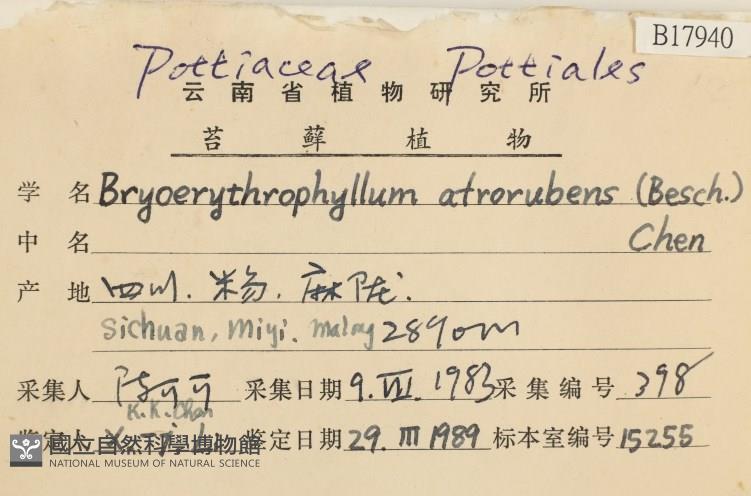 B17940
Pottiaceae Pottiales
云南省植物研究所
苔藓植物
学名 Bryoerythrophyllum atrorubens (Besch.)
中名 Chen
产地 四川. 米易. 麻陇.
Sichuan, Miyi. Malong 2890m
采集人 陈可可 采集日期 9. VII. 1983 采集编号 398
K.K. Chen
鉴定人 鉴定日期 29. III 1989 标本室编号 15255
國立自然科學博物館
NATIONAL MUSEUM OF NATURAL SCIENCE